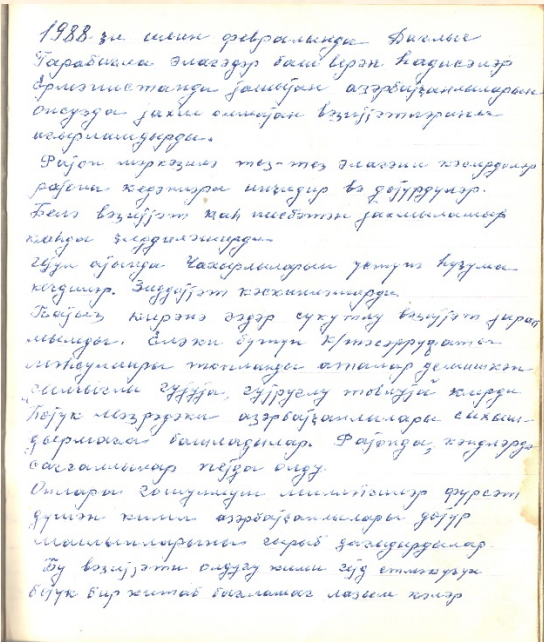 1988-зи илин февралында Дағлыг
Гарабағла әлагәдәр баш верән һадисәләр
Ермәнистанда јашајан азәрбајҹанлыларын
онсузда јахшы олмајан вәзијјәтләрини
ағырлашдырды.
Рајон мәркәзилә тез-тез әлагәни кәсирдиләр
рајона кедәнләри инҹидир вә дөјүрдүләр.
Белә вәзијјәт ҝаһ нисбәтән јахшылашыр
ҝаһда
ијун ајында Чахырлыларын үстүнә һүҹума
кечдиләр. Зиддијјәт кәскинләшмирди.
Гәдәр сукутлу вәзијјәт јаран
мышды. Еләки бүтүн к/тәсәррүфаты
мәһсуллары топланды аталар демишкән
гујруғлу товузја ҝирди
Бөјүк Мәзрәдәки азәрбајҹанлылары сыхыш-
дырмаға башладылар. Рајонда, кәндләрдә
саггаллылар пејда олду.
Онлара гошулмуш милисләр фүрсәт
дүшән кими азәрбајҹанлылары дөјүр
машынларыны гырыб дағыдырдылар.
Бу вәзијјәти олдуғу кими гејд етмәкдән
бөјүк бир китаб бағламаг лазым ҝәләр